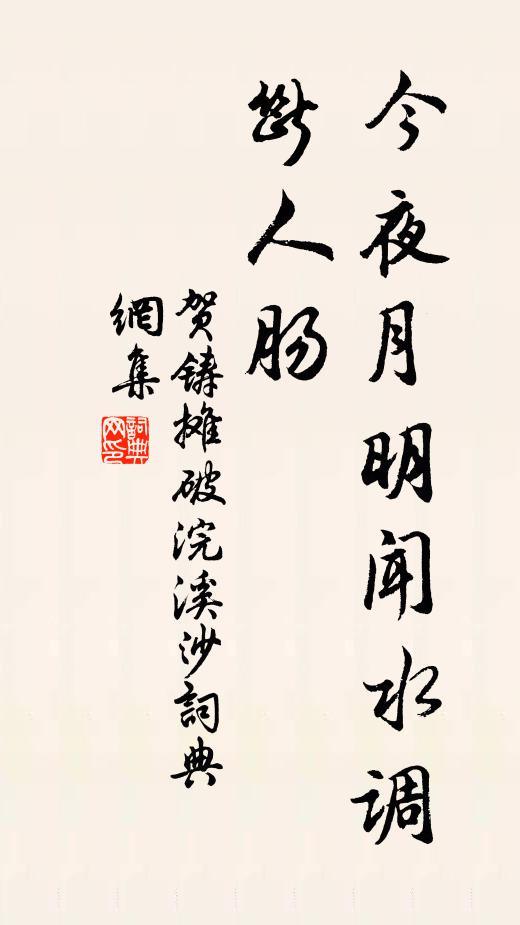 今夜月明闻水调
断人肠
贺铸摊破浣溪沙詞典
網集
詞典网印